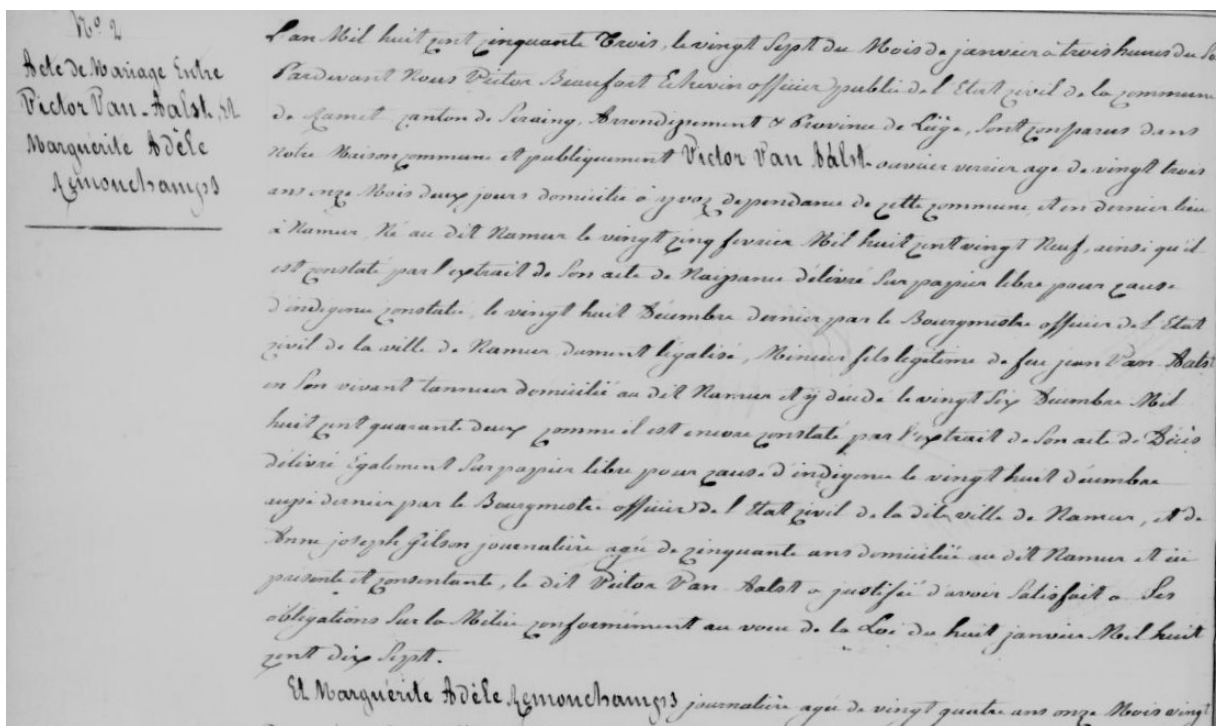 N.° 2
Acte de Mariage Entre
Victor Van-Aalst, Et
Marguérite Adèle
Remonchamps
L'an Mil huit cent cinquante Trois, le vingt Sept du Mois de janvier à trois heures du So
Pardevant Nous Victor Beaufort Echevin officier public de l'Etat civil de la commune
de Ramet, canton de Seraing, Arrondissement & Province de Liège, Sont comparus dans
Notre Maison commune et publiquement Victor Van Aalst ouvrier verrier agé de vingt trois
ans onze Mois deux jours domicilié à yvoz dependance de cette commune, et en dernier lieu
à Namur, Né au dit Namur le vingt cinq fevrier Mil huit cent vingt Neuf, ainsi qu'il
est constaté par l'extrait de Son acte de Naissance délivré Sur papier libre pour cause
d'indigence constatée, le vingt huit Décembre dernier par le Bourgmestre officier de l'Etat
civil de la ville de Namur dument légalisé, Mineur fils légitime de feu jean Van-Aalst
en Son vivant tanneur domicilié au dit Namur et y décédé le vingt Six Décembre Mil
huit cent quarante deux comme il est encore constaté par l'extrait de Son acte de Décès
délivré Egalement Sur papier libre pour cause d'indigence le vingt huit décembre
aussi dernier par le Bourgmestre officier de l'Etat civil de la dite ville de Namur, et de
Anne joseph Gilson journalière agée de cinquante ans domiciliée au dit Namur et ici
présente et consentante, le dit Victor Van-Aalst a justifié d'avoir Satisfait a Ses
obligations Sur la Milice conformément au vœu de la Loi du huit janvier Mil huit
cent dix Sept.
Et Marguérite Adèle Remonchamps journalière agée de vingt quatre ans onze Mois vingt